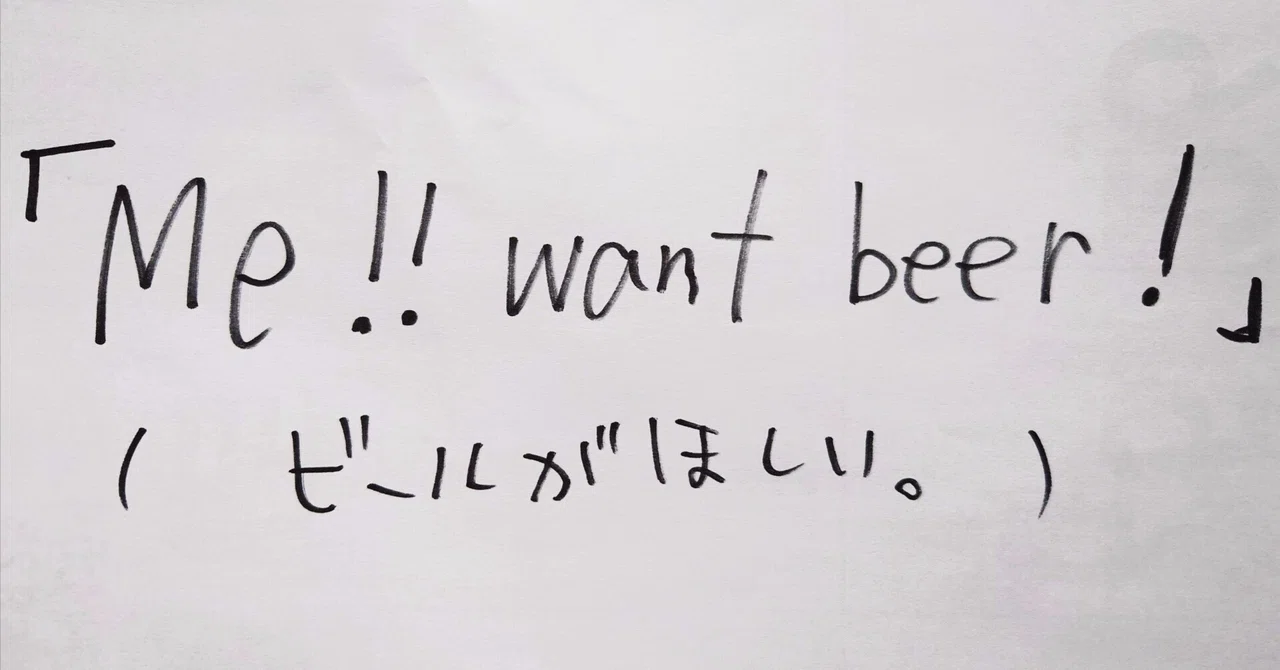 「Me!! want beer!」
( ビールがほしい。 )